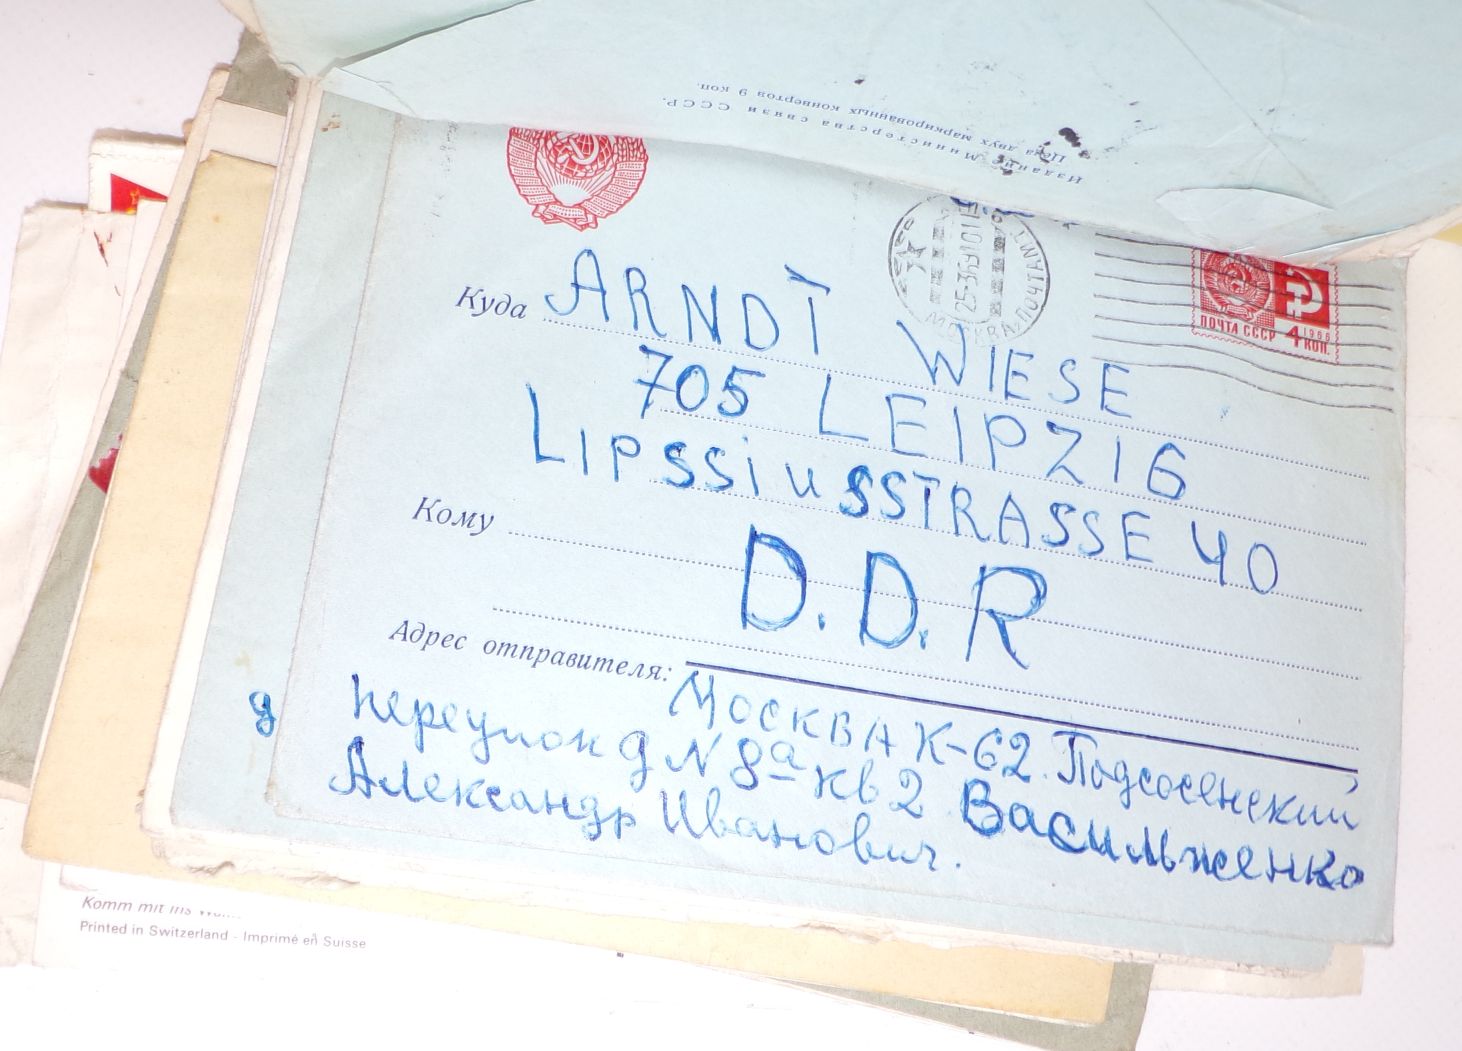 Издание Министерства связи СССР.
Цена двух маркированных конвертов 9 коп.
МОСКВА ПОЧТАМТ
ПОЧТА СССР 4 КОП.
1966
Куда ARNDT WIESE
705 LEIPZIG
LIPSSiUSSTRASSE 40
Кому
D.D.R
Адрес отправителя: МОСКВА К-62. Подсосенский
переулок д N 8а кв 2
Александр Иванович.
д
Komm mit ins
Printed in Switzerland - Imprimé en Suisse